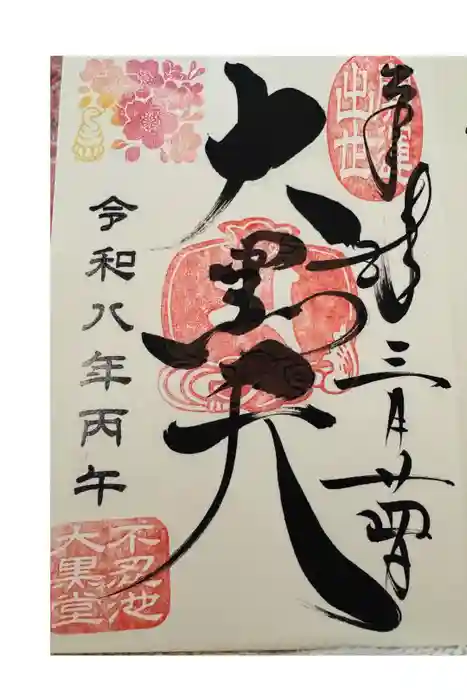 奉拝 三月廿四日
開運
出世
大黒天
令和八年丙午
不忍池
大黒堂